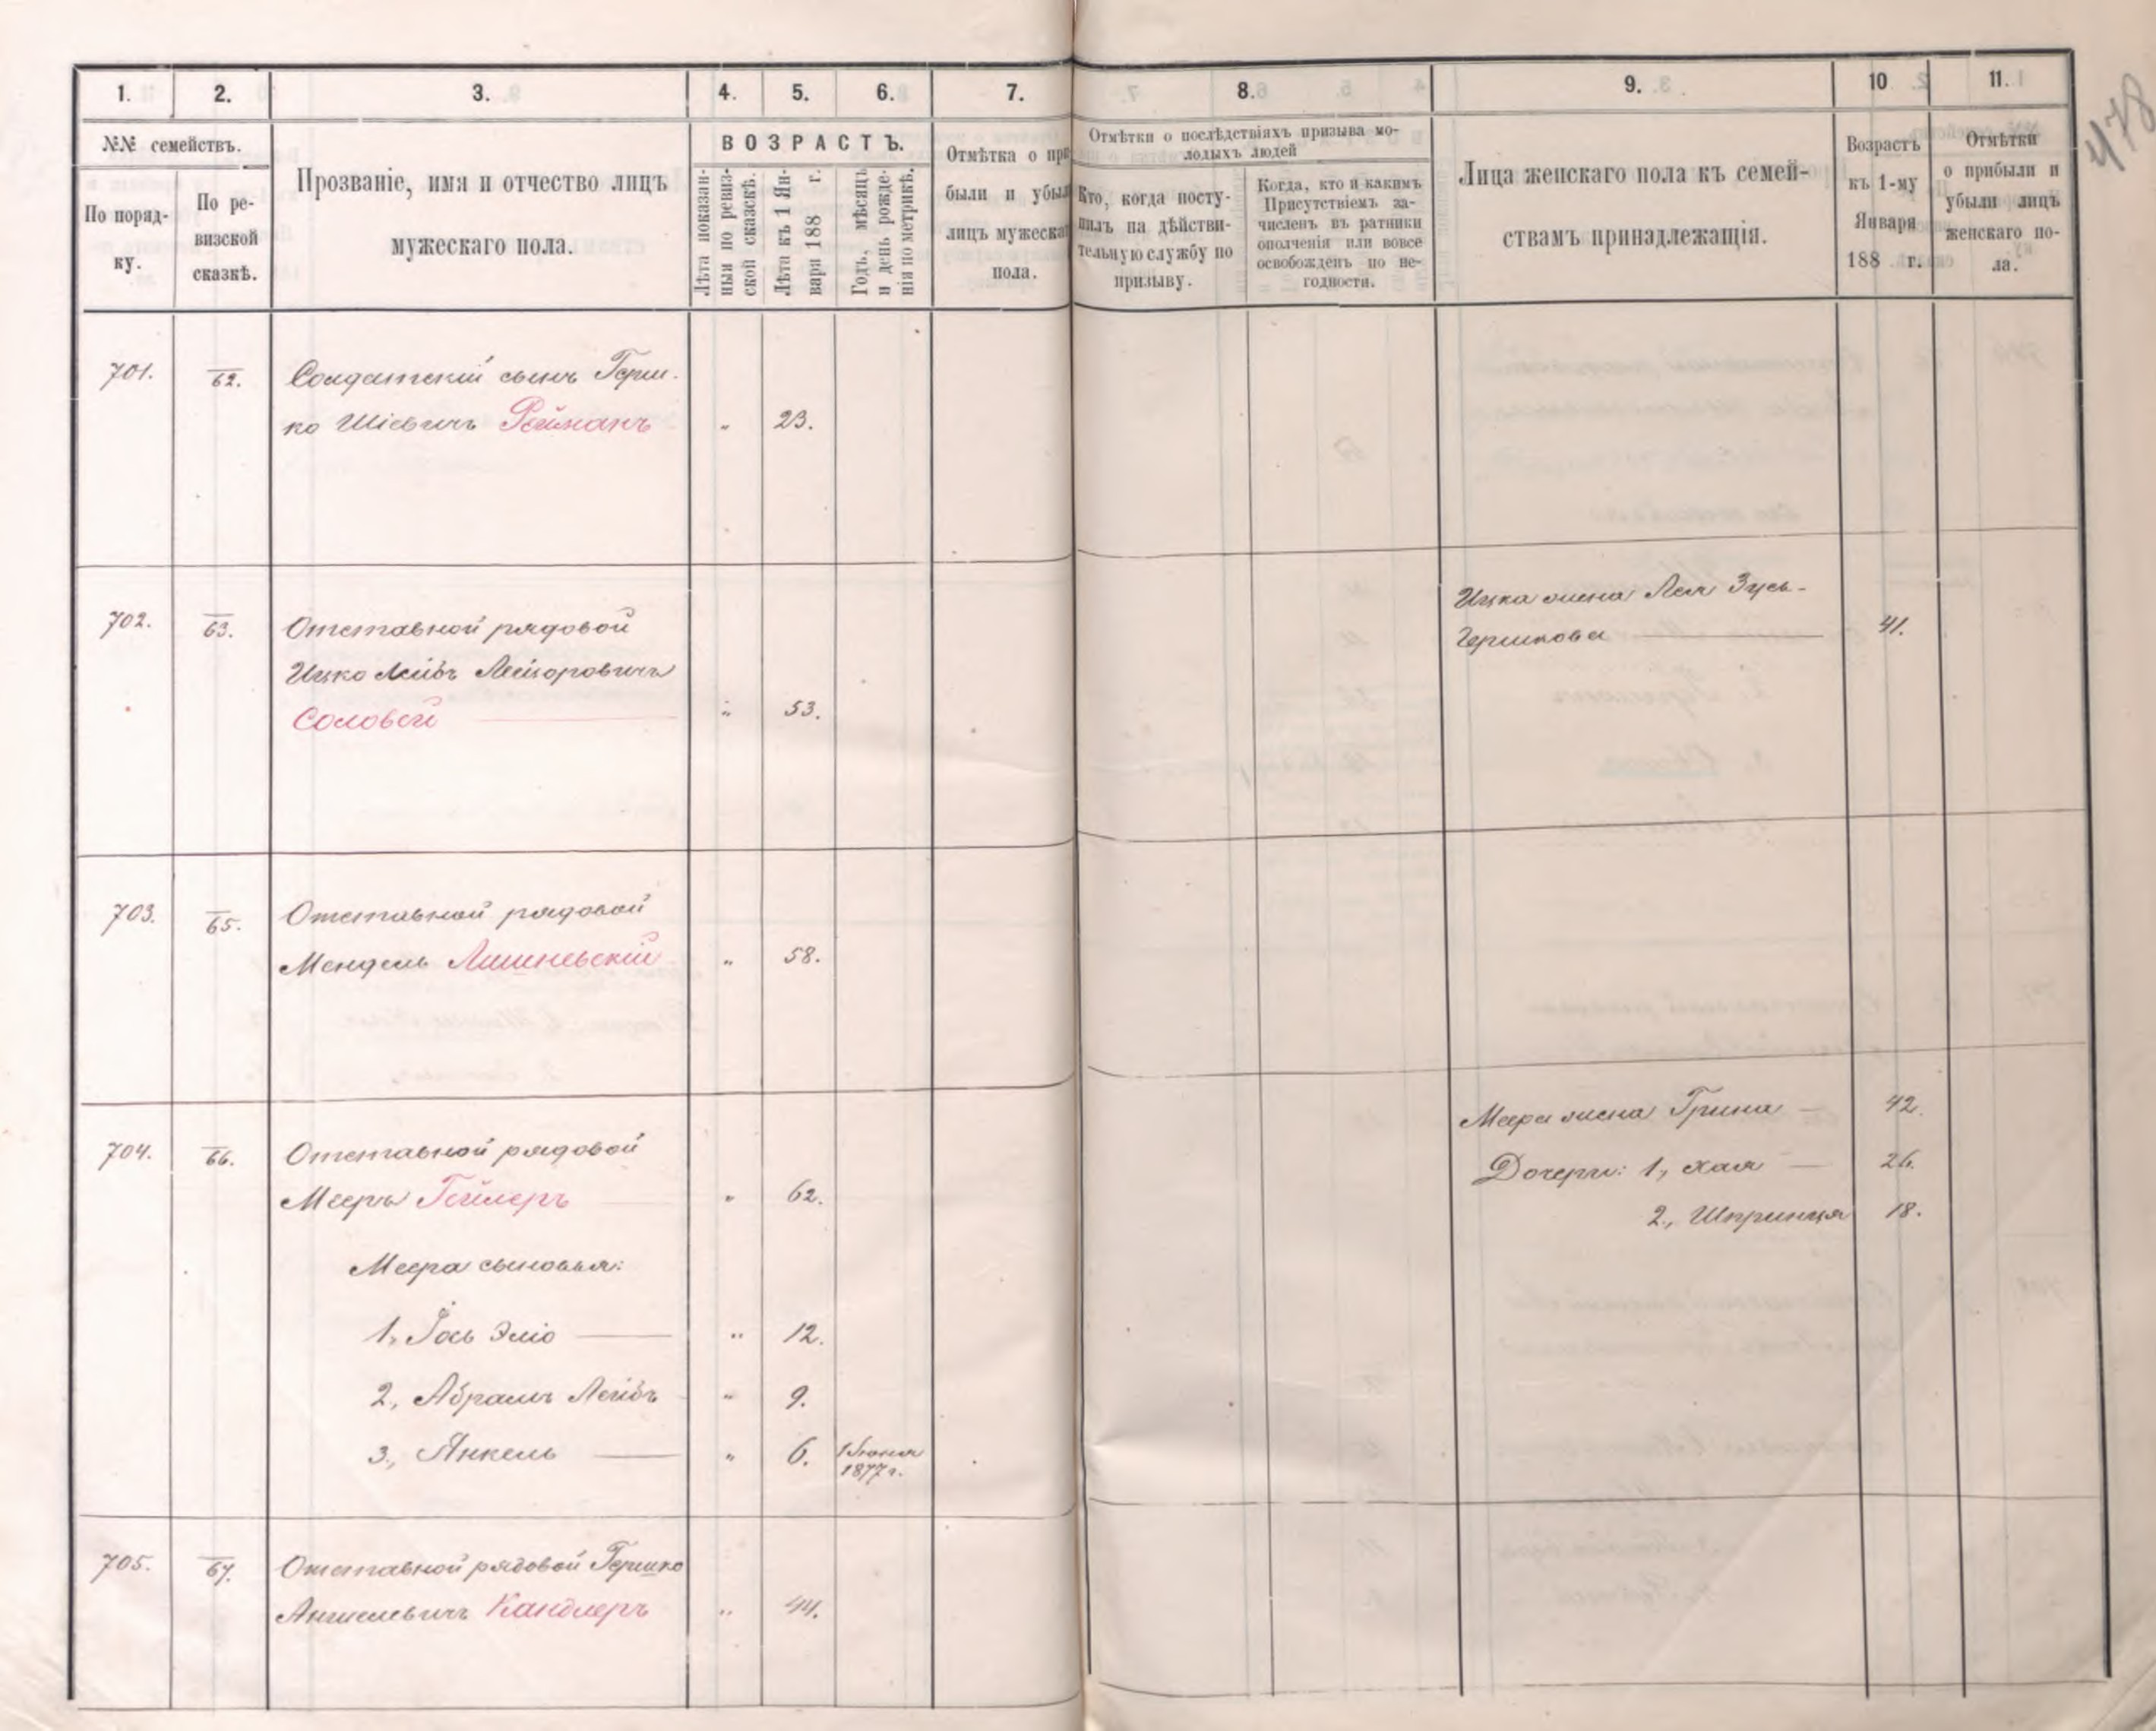 1.
2.
3.
4.
5.
6.
7.
8.
9.
10
11.
478
№№ семействъ.
По поряд-
ку.
По ре-
визской
сказкѣ.
Прозваніе, имя и отчество лицъ
мужескаго пола.
ВОЗРАСТЪ.
Лѣта показан-
ныя по ревиз-
ской сказскѣ.
Лѣта къ 1 Ян-
варя 188 г.
Годъ, мѣсяцъ
и день рожде-
нія по метрикѣ.
Отмѣтка о при
были и убыл
лицъ мужеска
пола.
Отмѣтки о послѣдствіяхъ призыва мо-
лодыхъ людей
Кто, когда посту-
пилъ на дѣйстви-
тельную службу по
призыву.
Когда, кто и какимъ
Присутствіемъ за-
численъ въ ратники
ополченія или вовсе
освобожденъ по не-
годности.
Лица женскаго пола къ семей-
ствамъ принадлежащія.
Возрастъ
къ 1-му
Января
188 г.
Отмѣтки
о прибыли и
убыли лицъ
женскаго по-
ла.
701.
62.
Солдатскій сынъ Герш-
ко Шіевичъ Рейманъ
„
23.
702.
63.
Отставной рядовой
Ицко Лейбъ Лейзоровичъ
Соловей
„
53.
Ицка жена Лея Зусь-
Гершкова
41.
703.
65.
Отставной рядовой
Мендель Лишневскій
„
58.
704.
66.
Отставной рядовой
Мееръ Гейлеръ
„
62.
Меера сыновья:
1, Іось Эліо
„
12.
2, Абрамъ Лейбъ
„
9.
3, Янкель
„
6.
1 Іюня
1877 г.
Меера жена Грина
42.
Дочери: 1, Хая
26.
2, Шпринця
18.
705.
67.
Отставной рядовой Гершко
Аншелевичъ Кандлеръ
„
44.